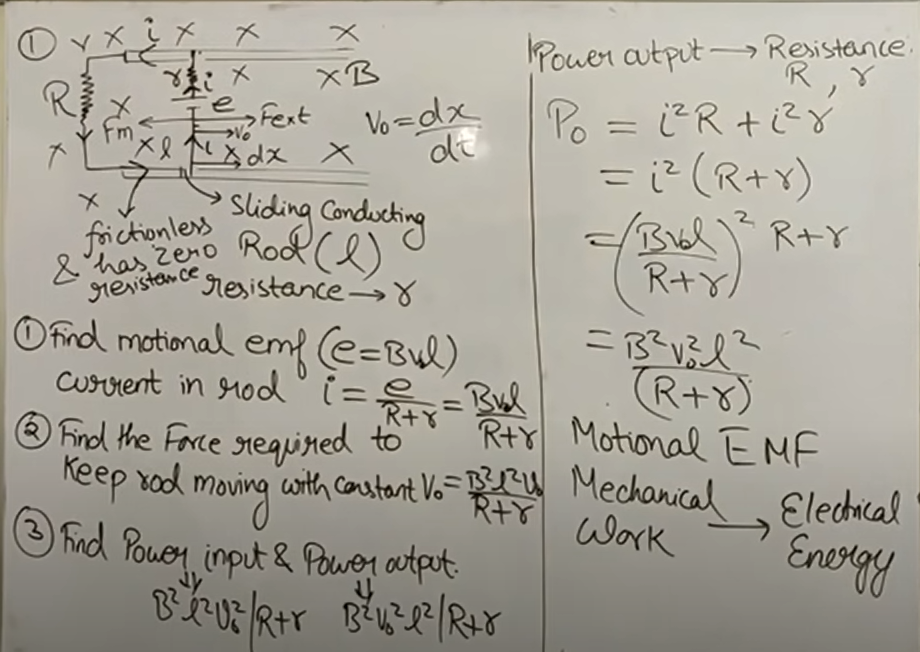 ① x x i x x x
R r i x x B
x e
Fm Fext V₀ = dx/dt
x x l i v₀ x dx x
x
frictionless & has zero resistance
Sliding Conducting Rod (l)
resistance → r
① Find motional emf (e = Bv₀l)
current in rod i = e/R+r = Bv₀l/R+r
② Find the Force required to
Keep rod moving with constant V₀ = B²l²v₀/R+r
③ Find Power input & Power output.
B²l²v₀²/R+r B²v₀²l²/R+r
Power output → Resistance
R, r
P₀ = i²R + i²r
= i²(R+r)
= (Bv₀l/R+r)² R+r
= B²v₀²l²/(R+r)
Motional EMF
Mechanical Work → Electrical Energy